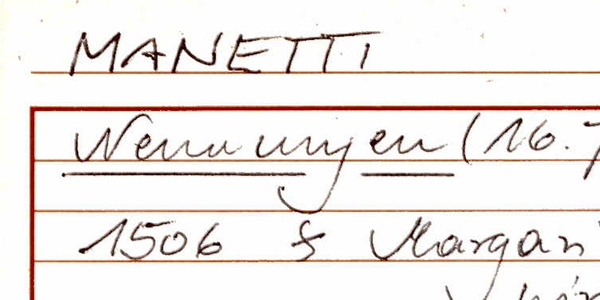 MANETTI
Nennungen (16.
1506 & Margar